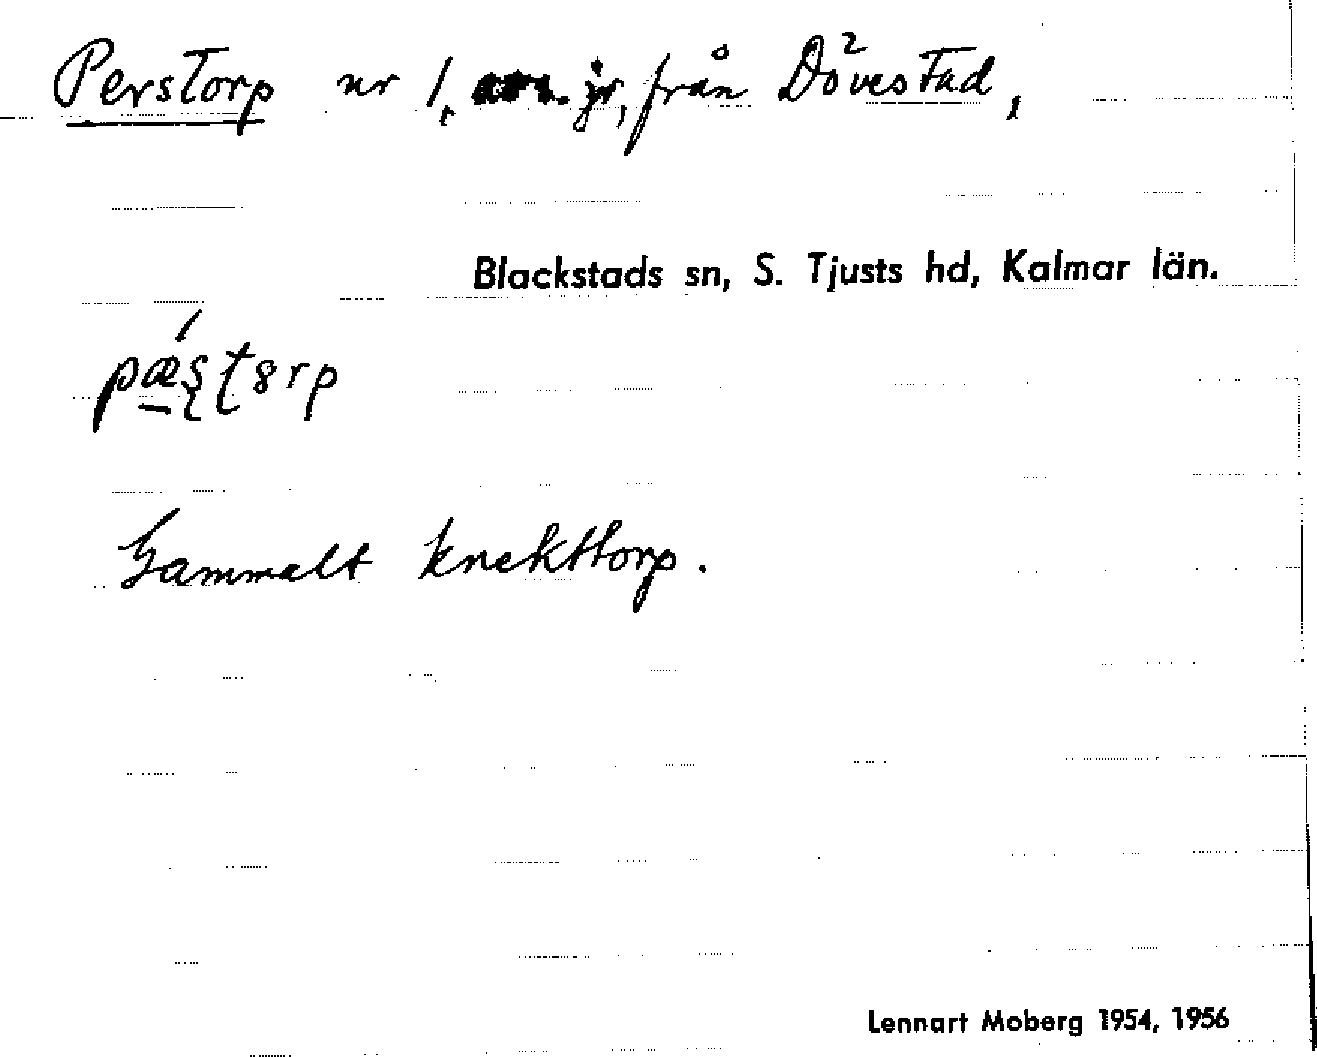 Perstorp nr 1, jr, från Dövestad,
Blackstads sn, S. Tjusts hd, Kalmar län.
pǽ̱ʂʈȣrp
Gammalt knekttorp.
Lennart Moberg 1954, 1956